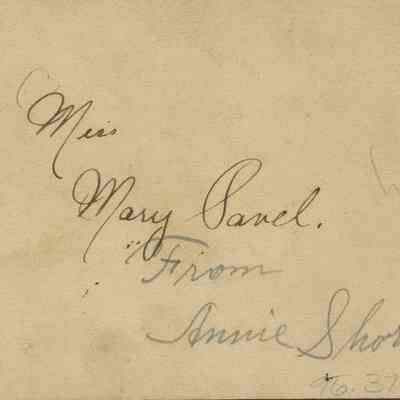 Miss
Mary Pavel.
From
Annie Shor
96.37